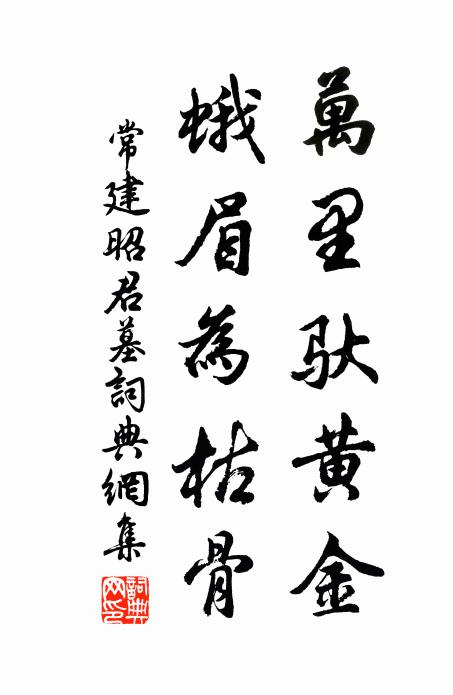 萬里馱黃金
蛾眉為枯骨
常建昭君墓詞典網集
詞典网印